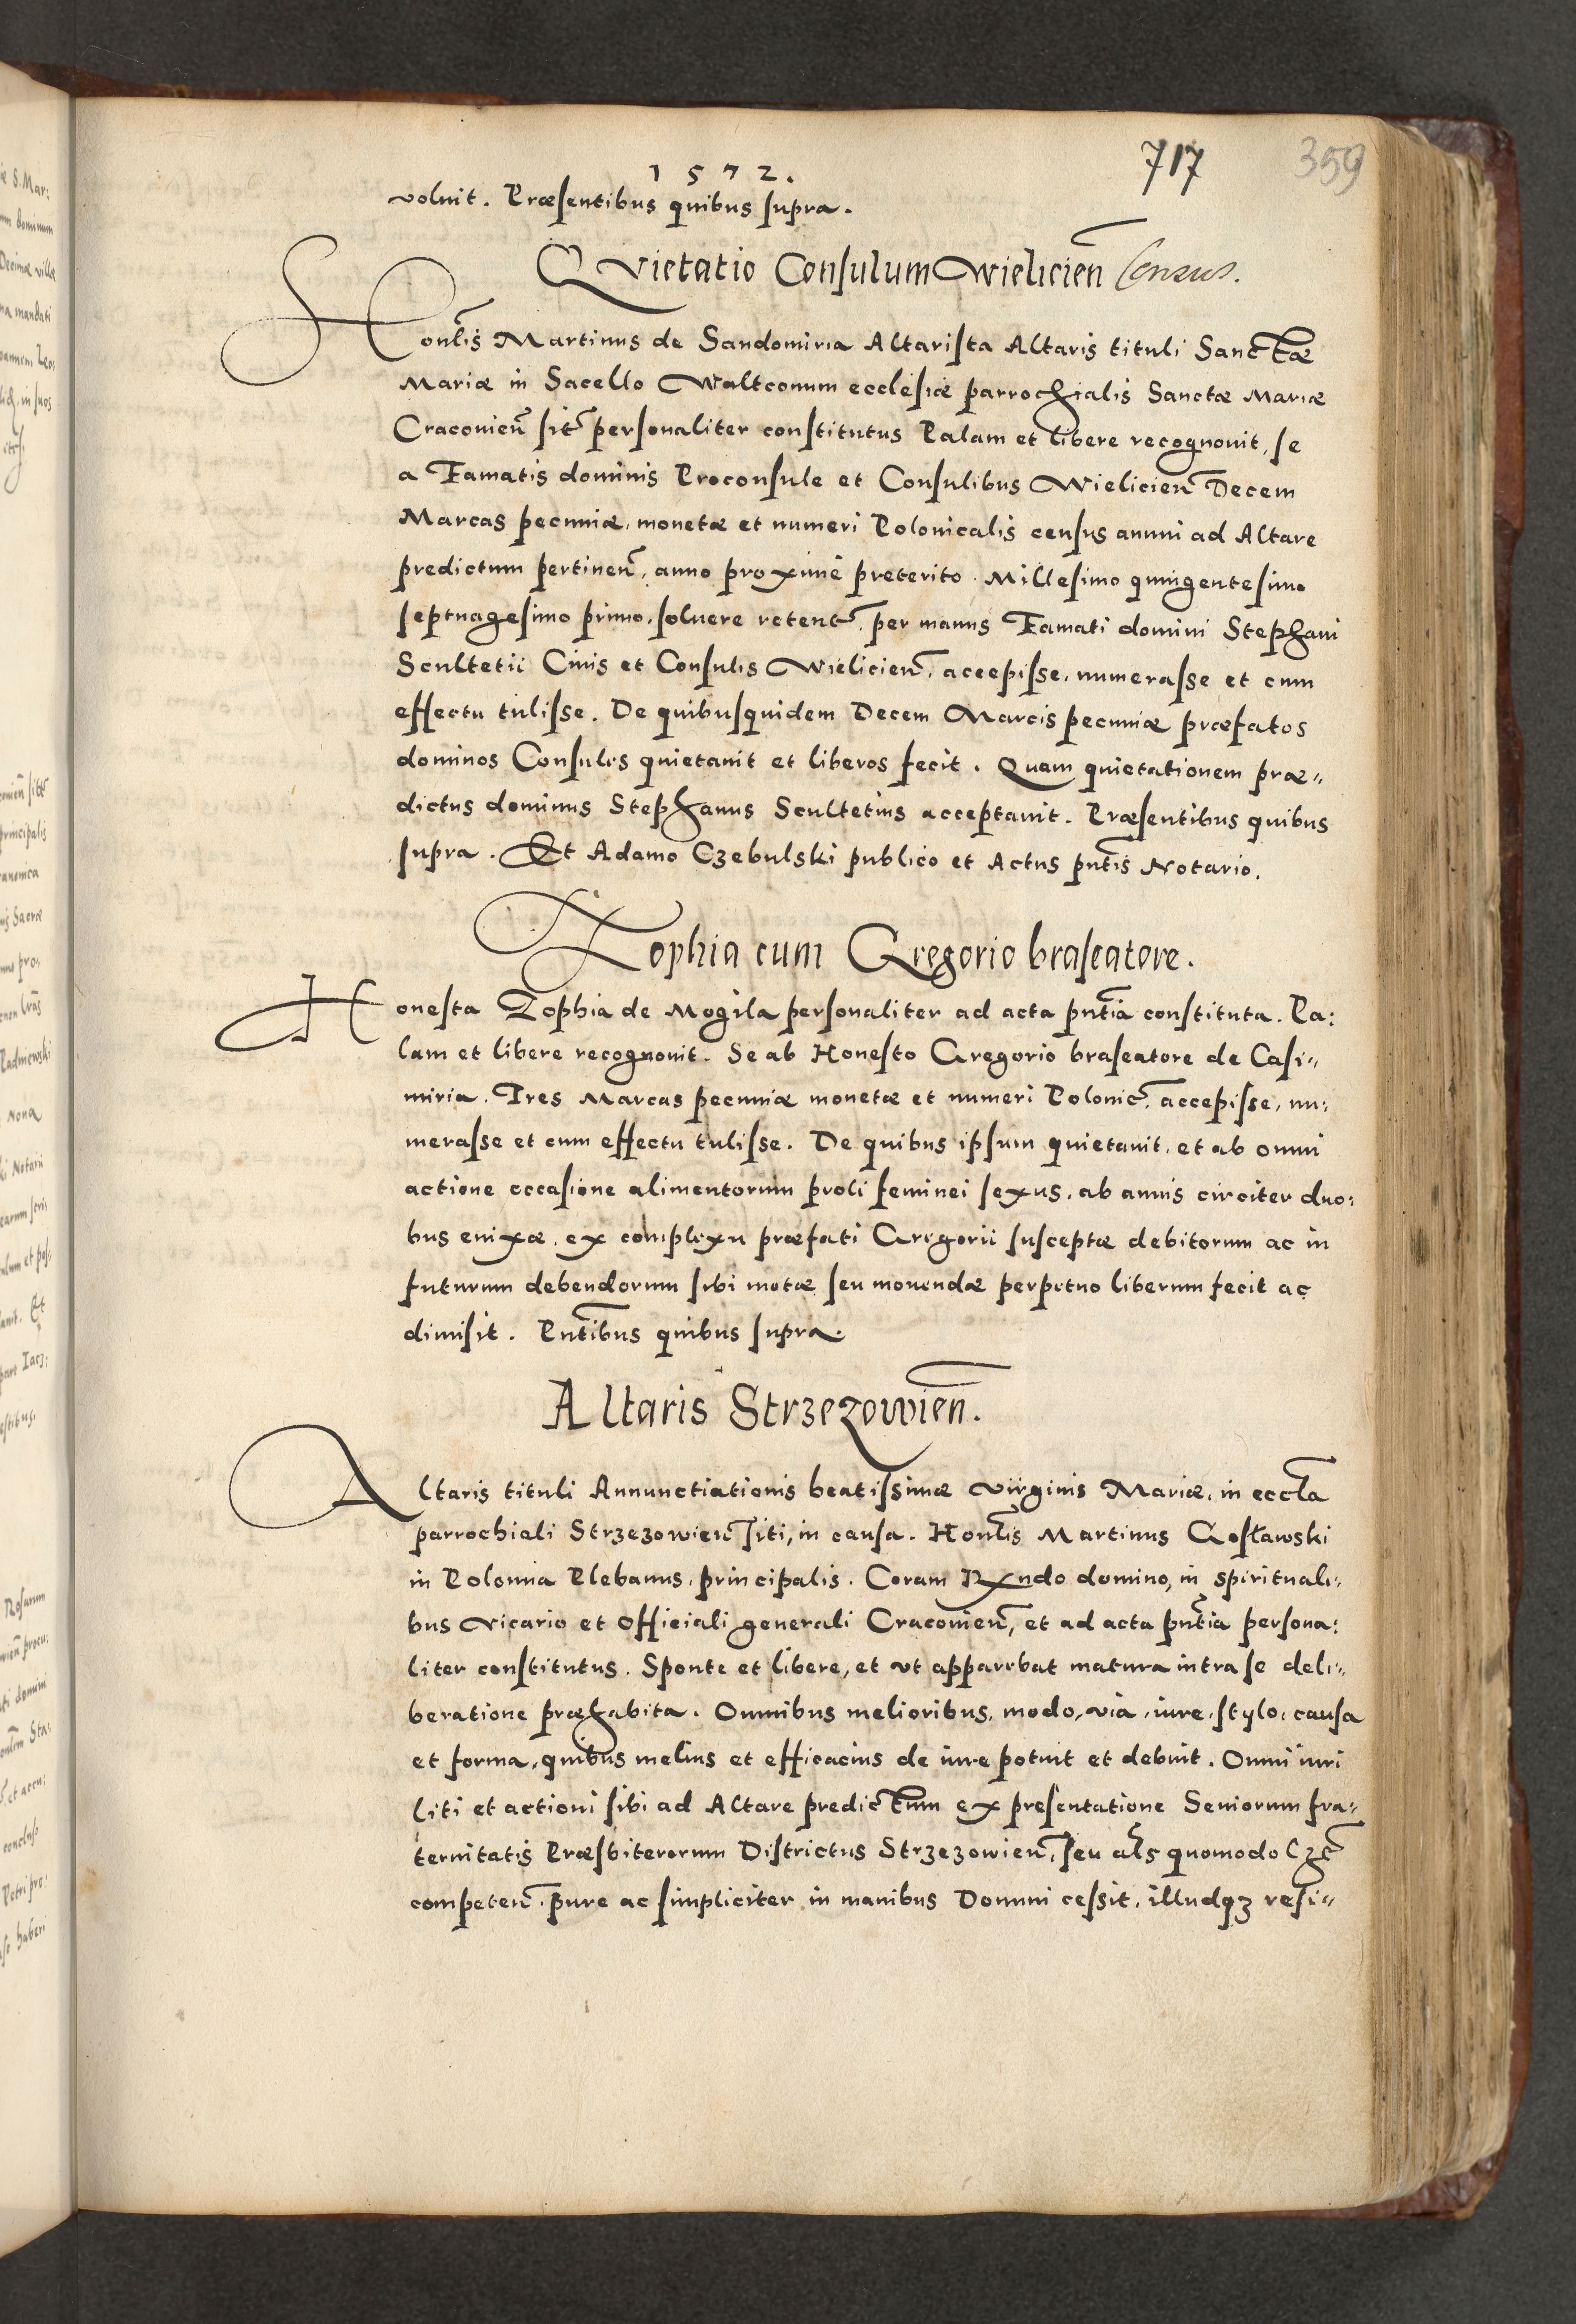 717 359
1572.
voluit. Præsentibus quibus supra.
Quietatio Consulum Wielicień Census.
Honlis Martinus de Sandomiria Altarista Altaris tituli Sanctæ
Mariæ in Sacello Waltconum ecclesiæ parrochialis Sanctæ Mariæ
Cracovień sit̃ personaliter constitutus Palam et libere recognovit, se
a Famatis dominis Proconsule et Consulibus Wielicień Decem
Marcas pecuniæ, monetæ et numeri Polonicalis census annui ad Altare
predictum pertineñ, anno proximè preterito. Millesimo quingentesimo
septuagesimo primo, soluere retent̃, per manus Famati domini Stephani
Scultetii Ciuis et Consulis Wielicień, accepisse, numerasse et cum
effectu tulisse. De quibusquidem Decem Marcis pecuniæ præfatos
dominos Consules quietauit et liberos fecit. Quam quietationem præ„
dictus dominus Stephanus Scultetius acceptauit. Præsentibus quibus
supra. Et Adamo Czebulski publico et Actus pñtis Notario.
Zophia cum Gregorio braseatore.
Honesta Zophia de Mogila personaliter ad acta pñtia constituta. Pa:
lam et libere recognouit. Se ab Honesto Gregorio braseatore de Casi„
miria. Tres Marcas pecuniæ monetæ et numeri Polonic̃, accepisse, nu:
merasse et cum effectu tulisse. De quibus ipsum quietauit, et ab omni
actione occasione alimentorum proli feminei sexus, ab annis circiter duo:
bus enixæ, ex complexu præfati Gregorii susceptæ debitorum ac in
futurum debendorum sibi motæ seu mouendæ perpetuo liberum fecit ac
dimisit. Pñtibus quibus supra.
Altaris Strzezowień.
Altaris tituli Annunctiationis beatissimæ Virginis Mariæ, in eccła
parrochiali Strzezowień siti, in causa. Honlis Martinus Gosławski
in Polonna Plebanus, principalis. Coram Rx̃ndo domino, in spirituali„
bus Vicario et Officiali generali Cracovień, et ad acta pñtia persona:
liter constitutus. Sponte et libere, et vt apparebat matura intra se deli„
beratione præhabita. Omnibus melioribus, modo, via, iure, stylo, causa
et forma, quibus melius et efficacius de iure potuit et debuit. Omni iuri
liti et actioni sibi ad Altare predictum ex presentatione Seniorum fra„
ternitatis Præsbiterorum Districtus Strzezowień, seu als quomodo Lzt̃
competeñ, pure ac simpliciter in manibus Domini cessit, illudqz resi„